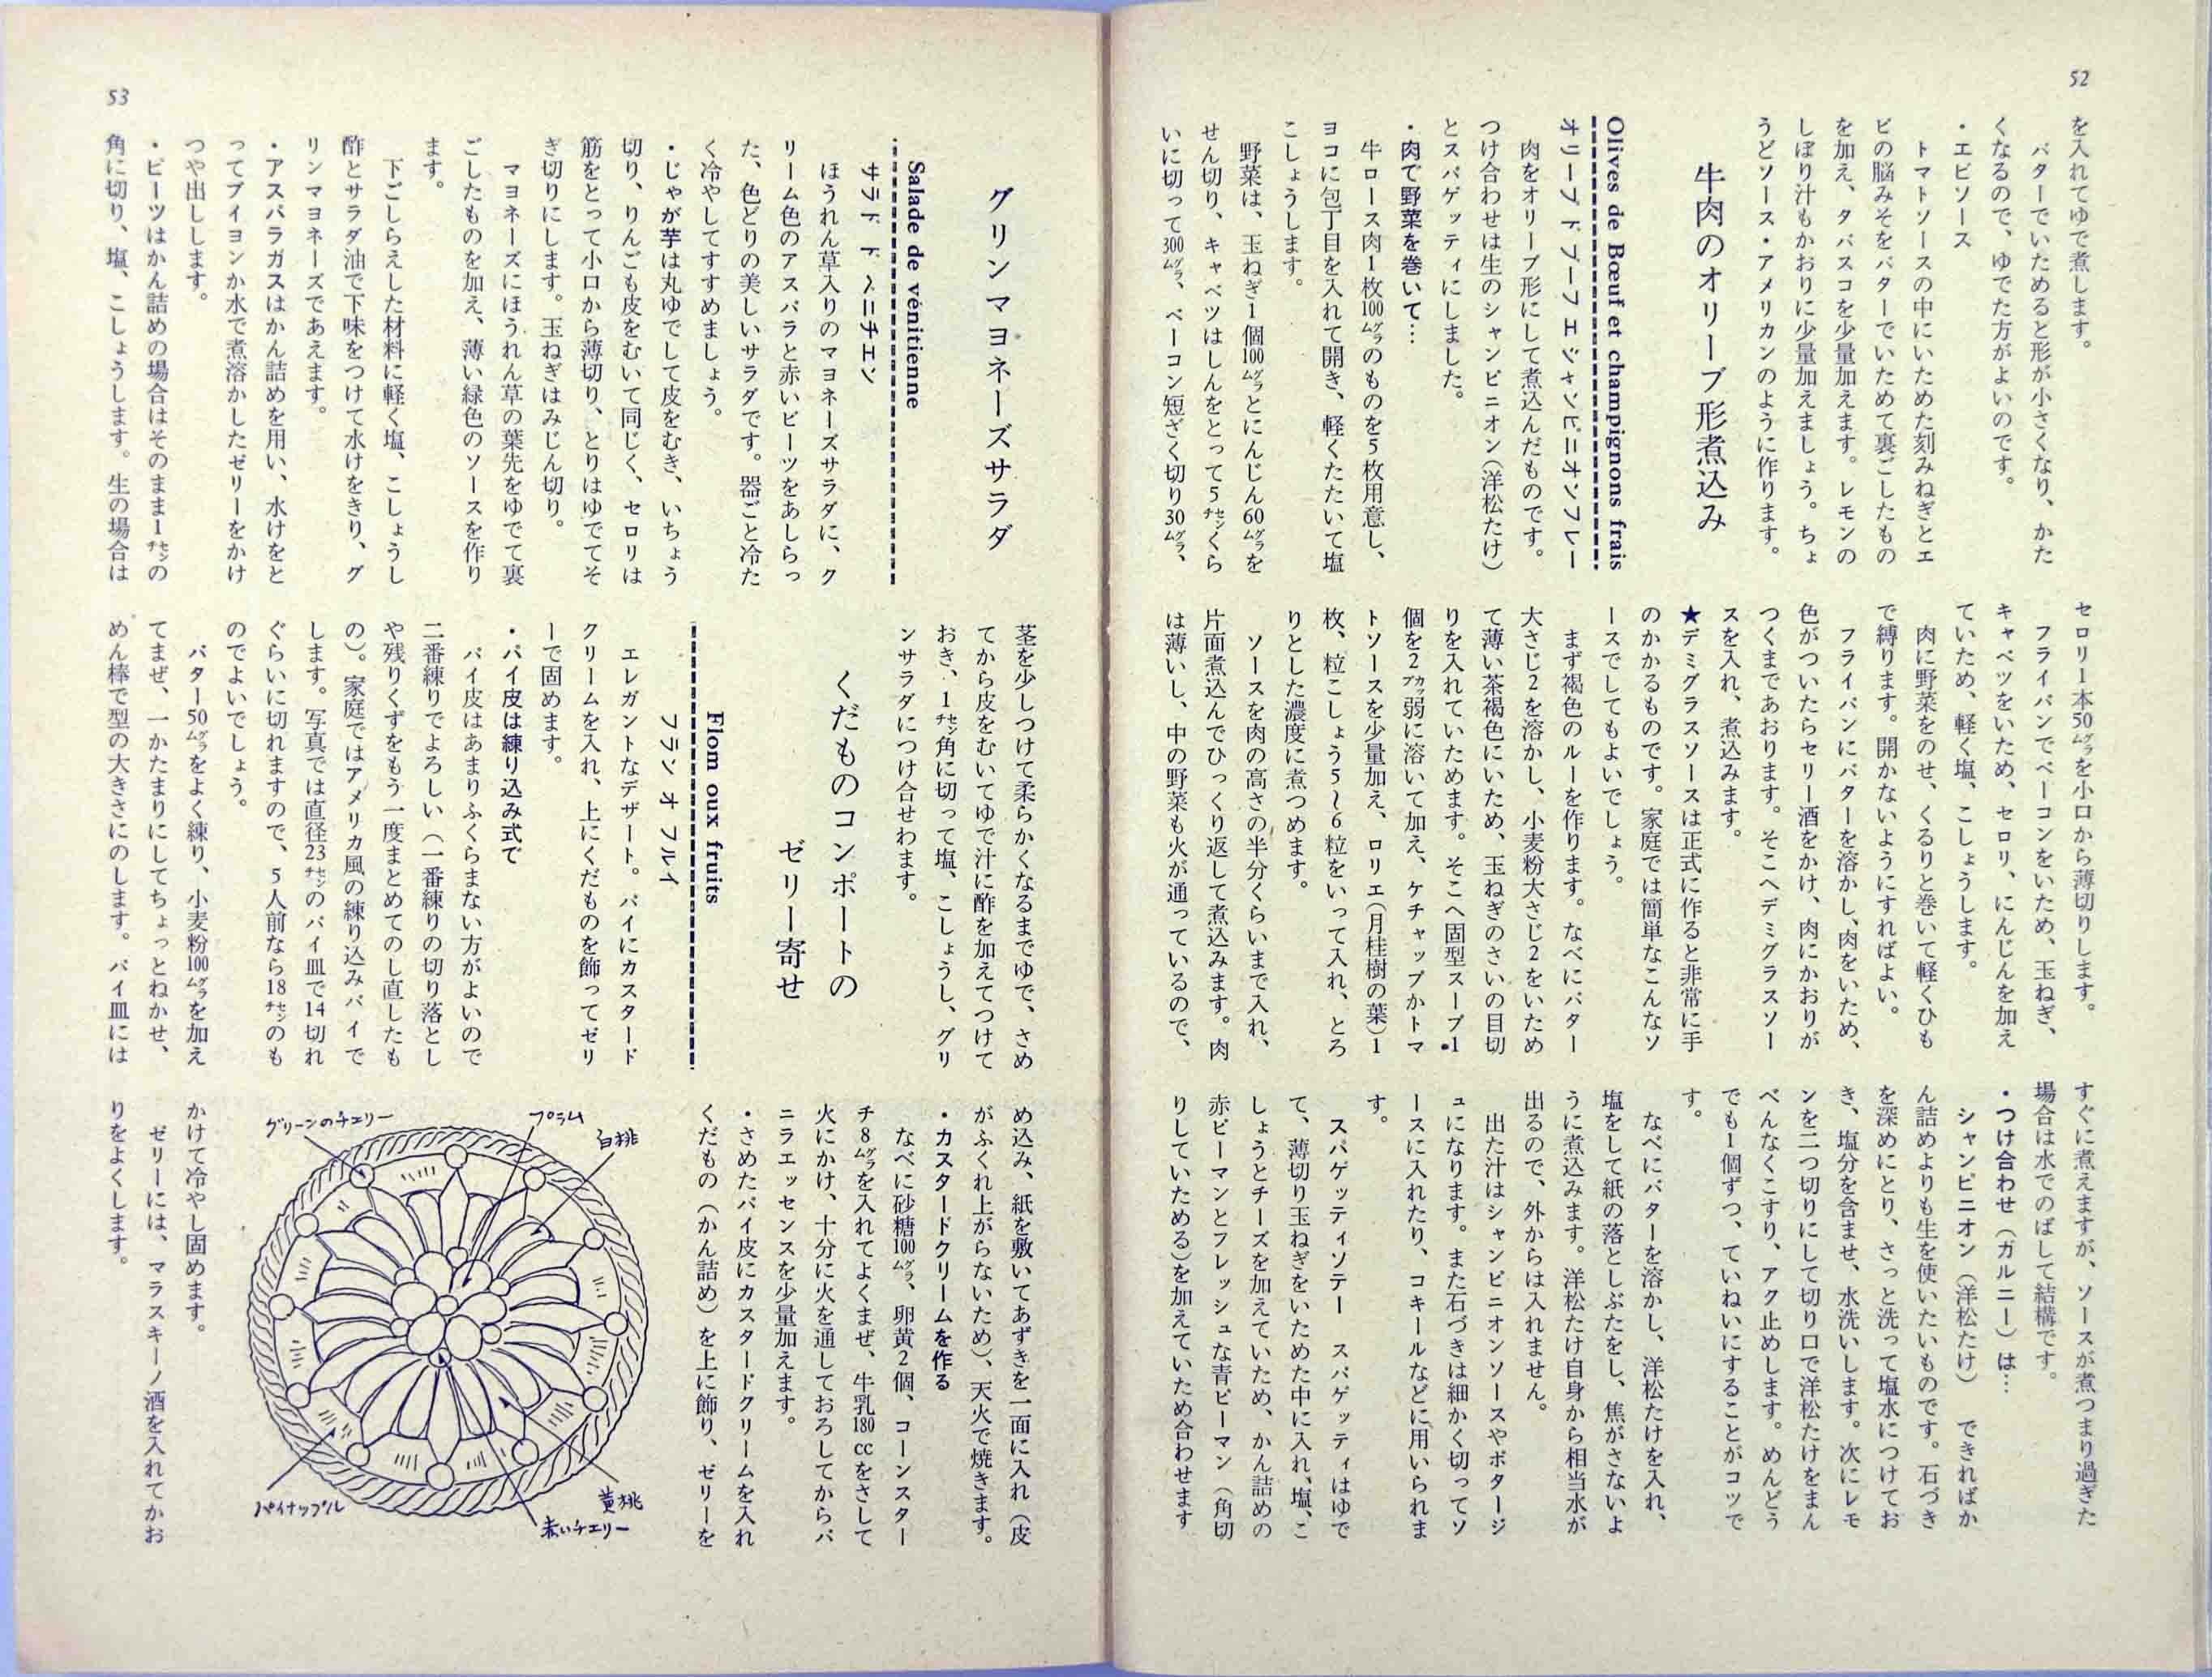 52
を入れてゆで煮します。
バターでいためると形が小さくなり、かた
くなるので、ゆでた方がよいのです。
・エビソース
トマトソースの中にいためた刻みねぎとエ
ビの脳みそをバターでいためて裏ごしたもの
を加え、タバスコを少量加えます。レモンの
しぼり汁もかおりに少量加えましょう。ちょ
うどソース・アメリカンのように作ります。
牛肉のオリーブ形煮込み
Olives de Bœuf et champignons frais
オリーブ ド ブーフ エ シャンピニオンフレー
肉をオリーブ形にして煮込んだものです。
つけ合わせは生のシャンピニオン(洋松たけ)
とスパゲッティにしました。
・肉で野菜を巻いて…
牛ロース肉1枚100グラムのものを5枚用意し、
ヨコに包丁目を入れて開き、軽くたたいて塩
こしょうします。
野菜は、玉ねぎ1個100グラムとにんじん60グラムを
せん切り、キャベツはしんをとって5センチくら
いに切って300グラム、ベーコン短ざく切り30グラム、
セロリー本50グラムを小口から薄切りします。
フライパンでベーコンをいため、玉ねぎ、
キャベツをいため、セロリ、にんじんを加え
ていため、軽く塩、こしょうします。
肉に野菜をのせ、くるりと巻いて軽くひも
で縛ります。開かないようにすればよい。
フライパンにバターを溶かし、肉をいため、
色がついたらセリー酒をかけ、肉にかおりが
つくまであおります。そこへデミグラスソー
スを入れ、煮込みます。
★デミグラスソースは正式に作ると非常に手
のかかるものです。家庭では簡単なこんなソ
ースでしてもよいでしょう。
まず褐色のルーを作ります。なべにバター
大さじ2を溶かし、小麦粉大さじ2をいため
て薄い茶褐色にいため、玉ねぎのさいの目切
りを入れていためます。そこへ固型スープ1
個を2カップ弱に溶いて加え、ケチャップかトマ
トソースを少量加え、ロリエ(月桂樹の葉)1
枚、粒こしょう5〜6粒をいって入れ、とろ
りとした濃度に煮つめます。
ソースを肉の高さの半分くらいまで入れ、
片面煮込んでひっくり返して煮込みます。肉
は薄いし、中の野菜も火が通っているので、
すぐに煮えますが、ソースが煮つまり過ぎた
場合は水でのばして結構です。
・つけ合わせ(ガルニー)は…
シャンピニオン(洋松たけ) できればか
ん詰めよりも生を使いたいものです。石づき
を深めにとり、さっと洗って塩水につけてお
き、塩分を含ませ、水洗いします。次にレモ
ンを二つ切りにして切り口で洋松たけをまん
べんなくこすり、アク止めします。めんどう
でも1個ずつ、ていねいにすることがコツで
す。
なべにバターを溶かし、洋松たけを入れ、
塩をして紙の落としぶたをし、焦がさないよ
うに煮込みます。洋松たけ自身から相当水が
出るので、外からは入れません。
出た汁はシャンピニオンソースやポタージ
ュになります。また石づきは細かく切ってソ
ースに入れたり、コキールなどに用いられま
す。
スパゲッティソテー スパゲッティはゆで
て、薄切り玉ねぎをいためた中に入れ、塩、こ
しょうとチーズを加えていため、かん詰めの
赤ピーマンとフレッシュな青ピーマン(角切
りしていためる)を加えていため合わせます
53
グリンマヨネーズサラダ
Salade de vénitienne
サラド ド ベニチエン
ほうれん草入りのマヨネーズサラダに、ク
リーム色のアスパラと赤いビーツをあしらっ
た、色どりの美しいサラダです。器ごと冷た
く冷やしてすすめましょう。
・じゃが芋は丸ゆでして皮をむき、いちょう
切り、りんごも皮をむいて同じく、セロリは
筋をとって小口から薄切り、とりはゆでてそ
ぎ切りにします。玉ねぎはみじん切り。
マヨネーズにほうれん草の葉先をゆでて裏
ごしたものを加え、薄い緑色のソースを作り
ます。
下ごしらえした材料に軽く塩、こしょうし
酢とサラダ油で下味をつけて水けをきり、グ
リンマヨネーズであえます。
・アスパラガスはかん詰めを用い、水けをと
ってブイヨンか水で煮溶かしたゼリーをかけ
つや出しします。
・ビーツはかん詰めの場合はそのまま1センチの
角に切り、塩、こしょうします。生の場合は
茎を少しつけて柔らかくなるまでゆで、さめ
てから皮をむいてゆで汁に酢を加えてつけて
おき、1センチ角に切って塩、こしょうし、グリ
ンサラダにつけ合せわます。
くだものコンポートの
ゼリー寄せ
Flom oux fruits
フラン オ フルイ
エレガントなデザート。パイにカスタード
クリームを入れ、上にくだものを飾ってゼリ
ーで固めます。
・パイ皮は練り込み式で
パイ皮はあまりふくらまない方がよいので
二番練りでよろしい(一番練りの切り落とし
や残りくずをもう一度まとめてのし直したも
の)。家庭ではアメリカ風の練り込みパイで
します。写真では直径23センチのパイ皿で14切れ
ぐらいに切れますので、5人前なら18センチのも
のでよいでしょう。
バター50グラムをよく練り、小麦粉100グラムを加え
てまぜ、一かたまりにしてちょっとねかせ、
めん棒で型の大きさにのします。パイ皿には
め込み、紙を敷いてあずきを一面に入れ(皮
がふくれ上がらないため)、天火で焼きます。
・カスタードクリームを作る
なべに砂糖100グラム、卵黄2個、コーンスター
チ8グラムを入れてよくまぜ、牛乳180ccをさして
火にかけ、十分に火を通しておろしてからバ
ニラエッセンスを少量加えます。
・さめたパイ皮にカスタードクリームを入れ
くだもの(かん詰め)を上に飾り、ゼリーを
グリーンのチェリー
プラム
白桃
黄桃
赤いチェリー
パイナップル
かけて冷やし固めます。
ゼリーには、マラスキーノ酒を入れてかお
りをよくします。